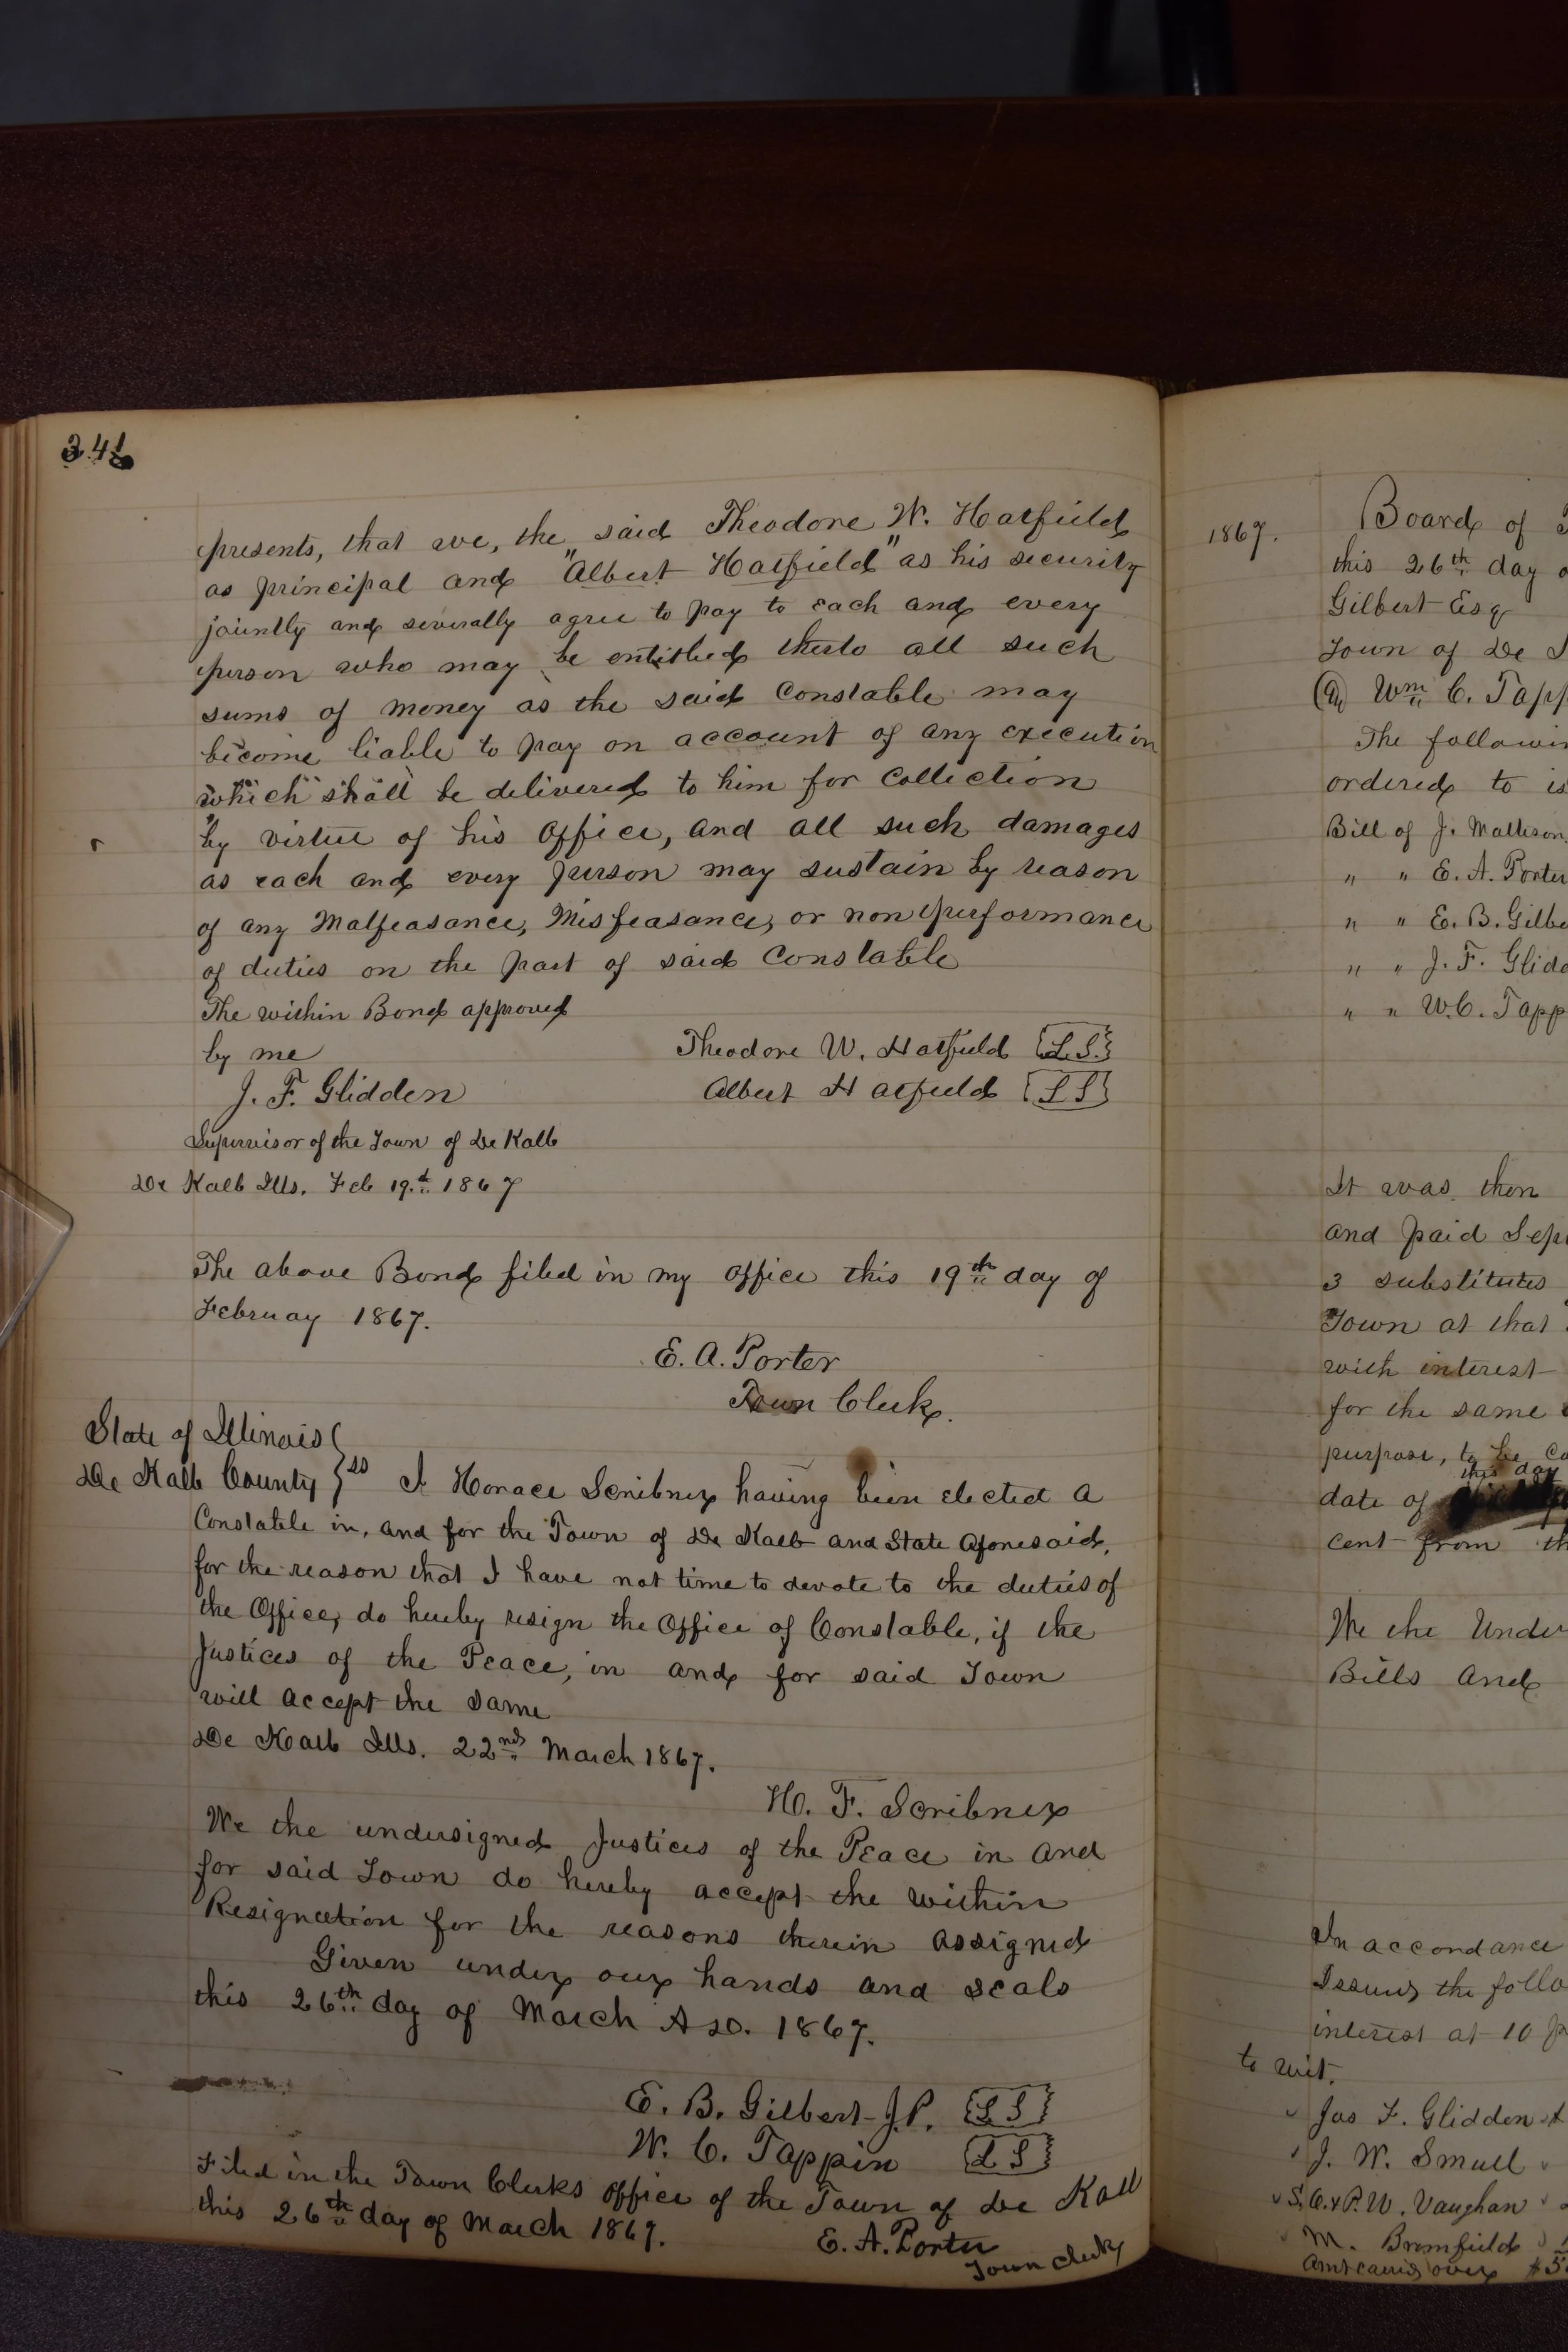 presents, that we, the said Theodore W. Hatfield
as principal and "Albert Hatfield" as his security
jointly and severally agree to pay to each and every
person who may be entitled therto all such
sums of money as the said Constable may
become liable to pay on account of any execution
which shall be delivered to him for Collection
by virtue of his Office, and all such damages
as each and every person may sustain by reason
of any Malfeasance, Misfeasance, or non performance
of duties on the part of said Constable
The within Bond approved
by me
Theodore W. Hatfield L.S.
J. F. Glidden
Albert Hatfield L S
Supervisor of the Town of De Kalb
De Kalb Ills. Feb 19.th 1867
The above Bond filed in my office this 19th day of
Februay 1867.
E. A. Porter
Town Clerk.
State of Illinois
De Kalb County } ss I Horace Scribner having been elected a
Constable in, and for the Town of De Kalb and State Aforesaid,
for the reason that I have not time to devote to the duties of
the Office, do hereby resign the Office of Constable, if the
Justices of the Peace, in and for said Town
will accept the same
De Kalb Ills. 22nd March 1867.
H. F. Scribner
We the undersigned Justices of the Peace in and
for said Town do hereby accept the within
Resignation for the reasons therein assigned
Given under our hands and seals
this 26th day of March A D. 1867.
E. B. Gilbert J.P. L S
W. C. Tappin L S
Filed in the Town Clerks office of the Town of De Kalb
this 26th day of March 1867.
E. A. Porter
Town Clerk
1867.
Board of
this 26th day
Gilbert Esq
Town of De
Wm C. Tapp
The followin
ordered to is
Bill of J. Mattison
" " E. A. Porter
" " E. B. Gilbe
" " J. F. Glidd
" " W. C. Tapp
It was then
and paid Sep
3 substitutes
Town at that
with interest
for the same
purpose, to be
this day
date of
cent from th
We the Under
Bills and
In accordance
Issued the follo
interest at 10 p
to wit.
Jas F. Glidden
J. W. Smull
S. O. & P. W. Vaughan
M. Bromfield
Amt carrid over $5